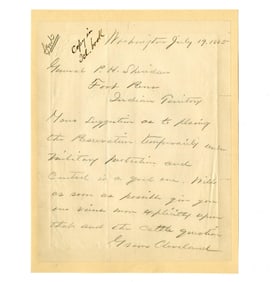 Copy in
Tel. book
Washington July 19, 1885
General P. H. Sheridan
Fort Reno
Indian Territory
Your suggestion as to placing
the Reservation temporarily under
Military Protection and
Control is a good one. Will
as soon as possible give you
our views more explicitly upon
that and the Cattle question
Grover Cleveland